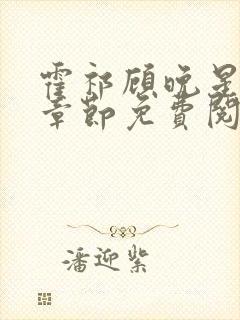 霍祁顾晚星
章节免费阅
潘迎紫